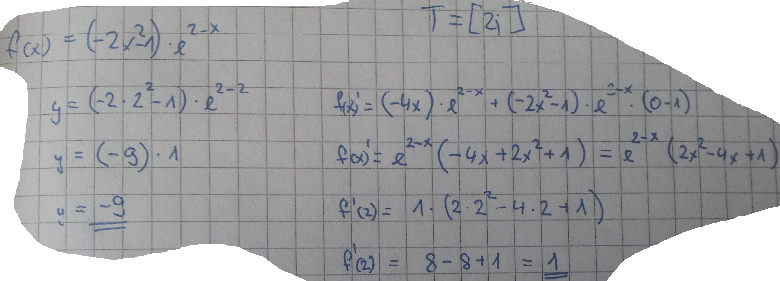 f(x) = (-2x²-1) · e^(2-x)
T = [2; ]
y = (-2 · 2² - 1) · e^(2-2)
y = (-9) · 1
y = -9
f(x)' = (-4x) · e^(2-x) + (-2x²-1) · e^(2-x) · (0-1)
f(x)' = e^(2-x) (-4x + 2x² + 1) = e^(2-x) (2x² - 4x + 1)
f'(2) = 1 · (2 · 2² - 4 · 2 + 1)
f'(2) = 8 - 8 + 1 = 1